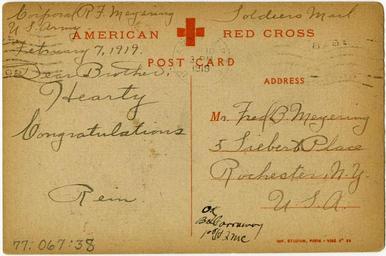 Corporal R F Meyering
Soldiers Mail
U.S. Army
February 7, 1919.
AMERICAN RED CROSS
POST CARD
Dear Brother:
Hearty
Congratulations
Rein
ADDRESS
Mr. Fred B. Meyering
5 Siebert Place
Rochester, N.Y.
U.S.A.
OK
77:067:38